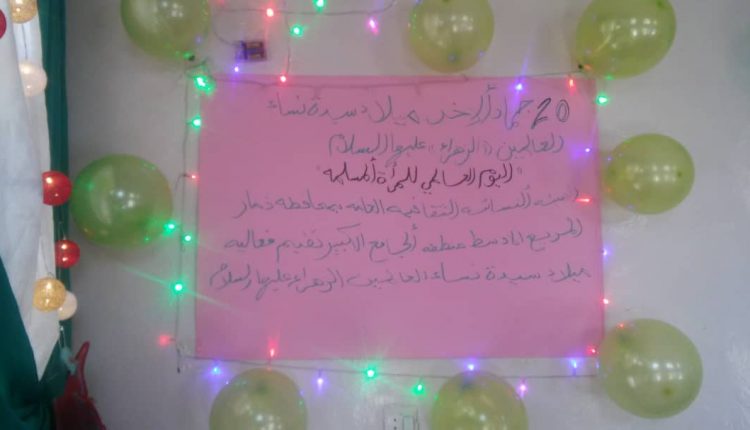 20 جماد ألاخر ميلاد سيدة نساء
العالمين "الزهراء" عليها السلام
"اليوم العالمي للمرأة ألمسلمه"
النسائيه الثقافيه العامه بمحافظة ذمار
المربع الاوسط منطقه ألجامع الاكبير تقديم فعاليه
ميلاد سيدة نساء العالمين الزهراء عليها السلام